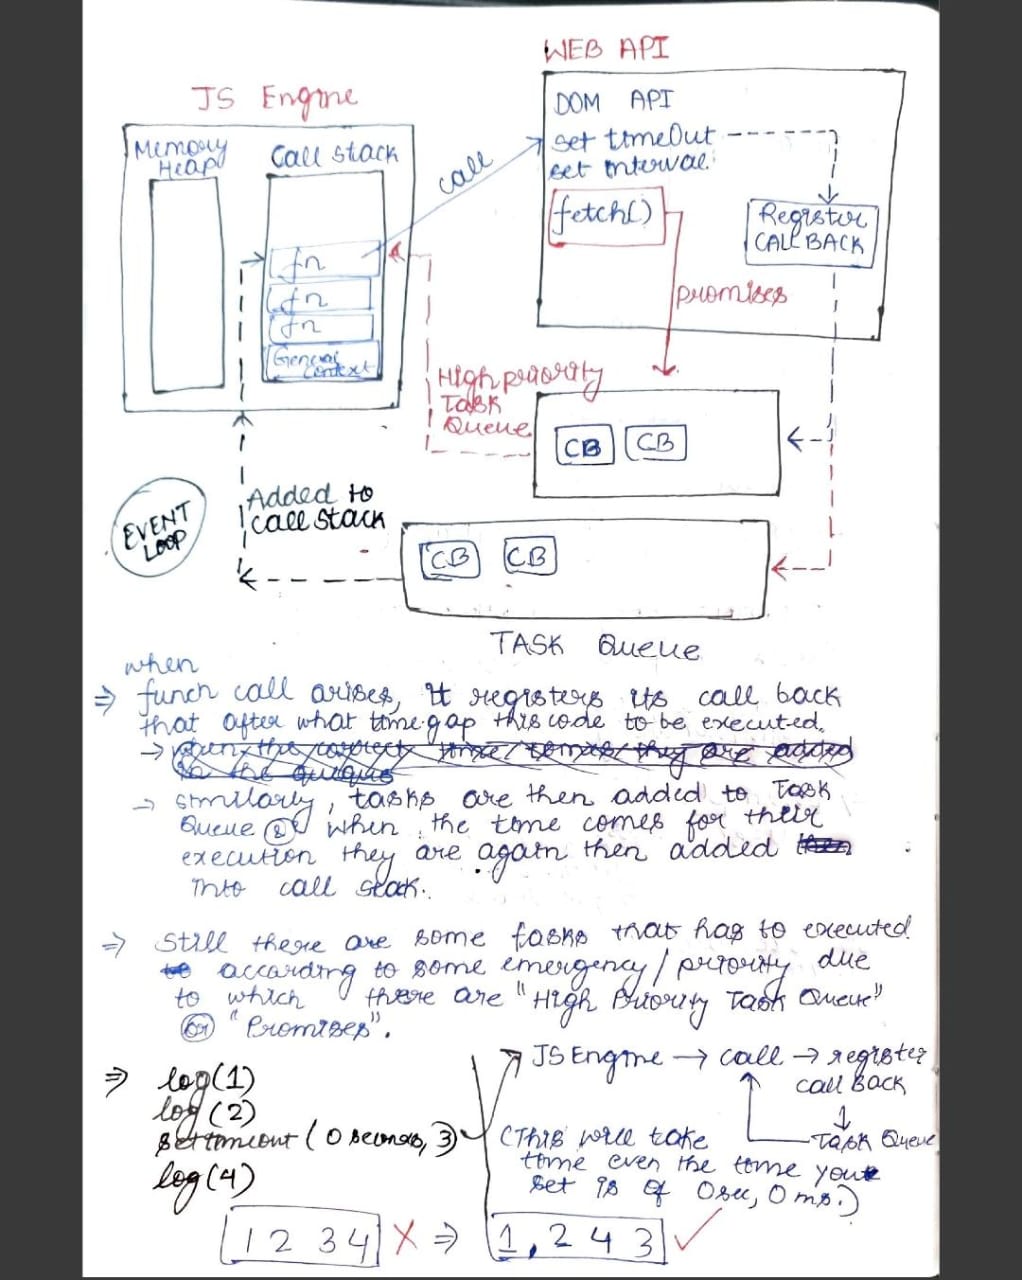 WEB API
JS Engine
DOM API
Memory Heap
Call stack
call
set timeOut
set Interval
fetch()
Register
CALL BACK
fn
fn
fn
General
Context
promises
High priority
Task
Queue
CB CB
EVENT
LOOP
Added to
call stack
CB CB
TASK Queue
when
⇒ funcn call arises, it registers its call back
that after what time gap this code to be executed.
→ when the correct time comes they are added
to the
→ similarly, tasks are then added to Task
Queue & when the time comes for their
execution they are again then added then
into call stak.
⇒ Still there are some tasks that has to executed
to according to some emergency/priority due
to which there are "High Priority Task Queue"
or "Promises".
⇒ log(1)
log(2)
settimeout (0 seconds, 3)
log(4)
JS Engine → call → register
call Back
↓
Task Queue
(This will take
time even the time you
set is of 0sec, 0ms.)
1 2 3 4 X ⇒ 1, 2 4 3 ✓